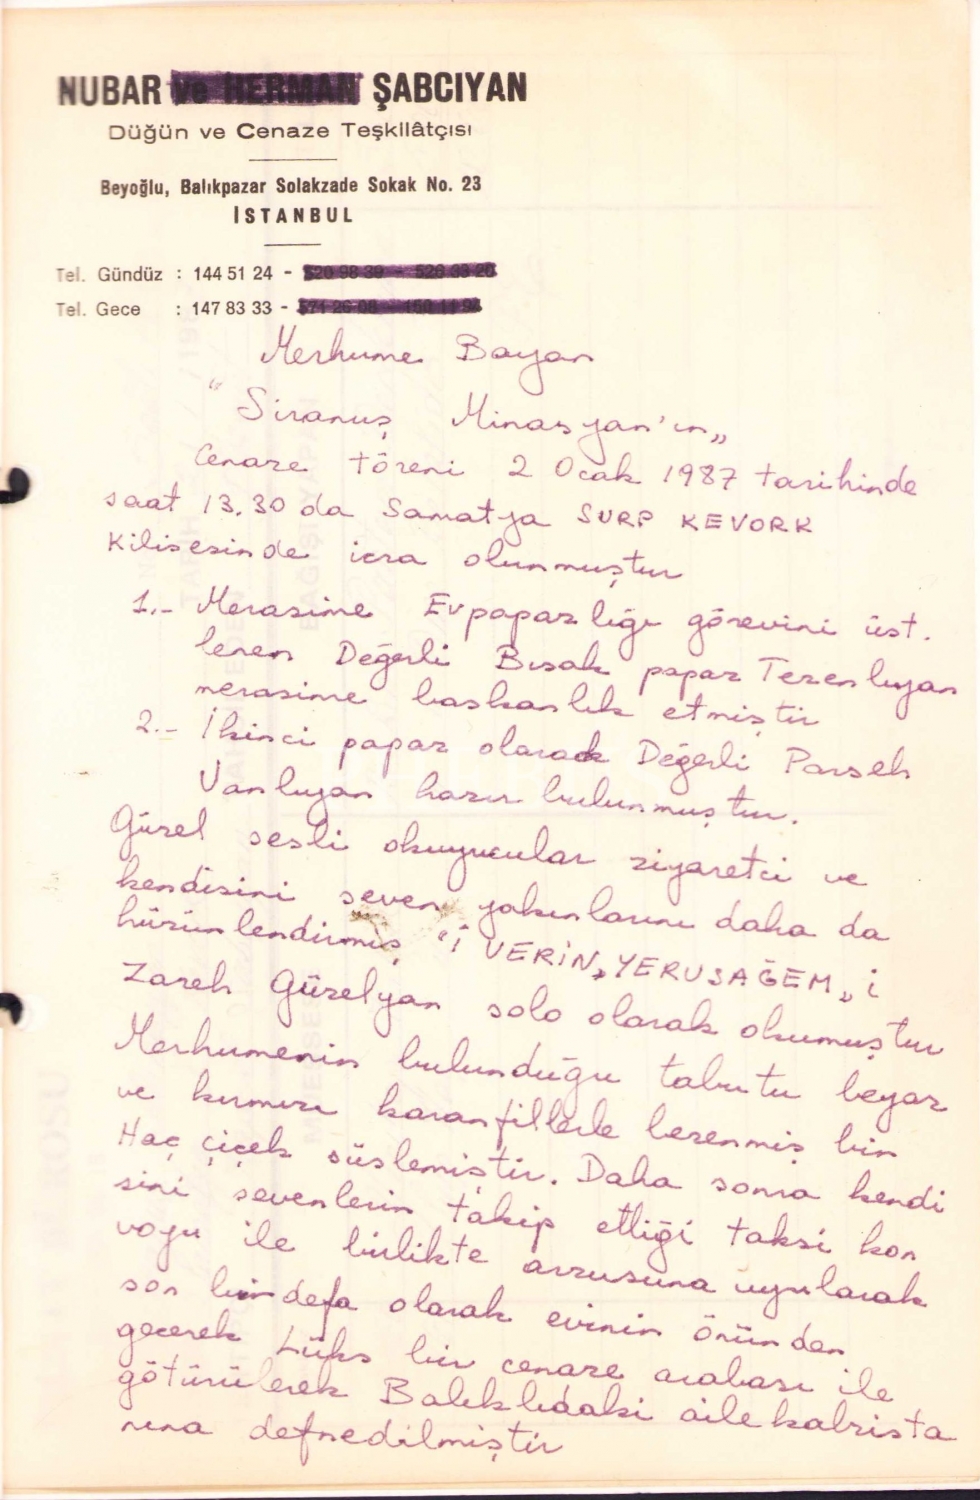 NUBAR ve HERMAN ŞABCIYAN
Düğün ve Cenaze Teşkilâtçısı
Beyoğlu, Balıkpazar Solakzade Sokak No. 23
İSTANBUL
Tel. Gündüz : 144 51 24 - 520 98 39 - 526 33 20
Tel. Gece : 147 83 33 -
Merhume Bayan
"Siranuş Minasyan'ın„
Cenaze töreni 2 Ocak 1987 tarihinde
saat 13.30 da Samatya SURP KEVORK
Kilisesinde icra olunmuştur
1.- Merasime Evpapazlığı görevini üst.
lenen Değerli Bısak papaz Terzenluyan
merasime baskanlık etmiştir
2.- İkinci papaz olarak Değerli Parseh
Vanluyan hazır bulunmuştur.
Güzel sesli okuyucular ziyaretci ve
kendisini seven yakınlarını daha da
hüzünlendirmiş "İ VERİN„ YERUSAĞEM„ i
Zareh Güzelyan solo olarak okumuştur
Merhumenin bulunduğu tabutu beyaz
ve kırmızı karanfillerle bezenmiş bir
Haç çiçek süslemiştir. Daha sonra kendi
sini sevenlerin takip ettiği taksi kon
voyu ile birlikte arzusuna uyularak
son bir defa olarak evinin önünden
geçerek Lüks bir cenaze arabası ile
götürülerek Balıklıdaki aile kabrista
nına defnedilmiştir